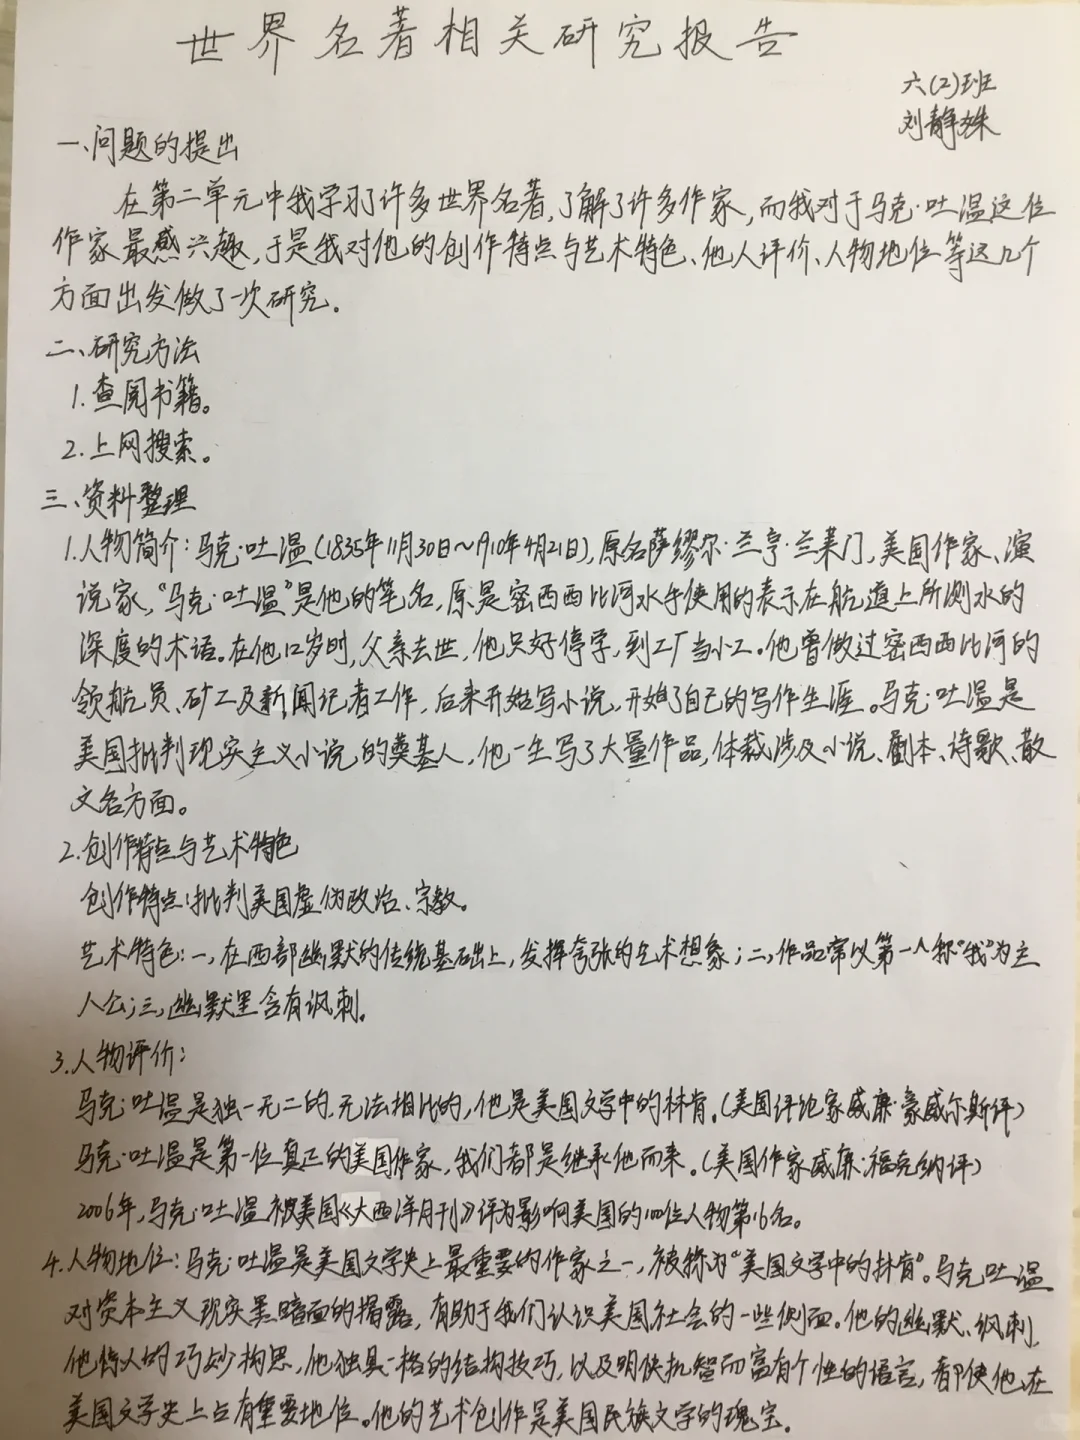 世界名著相关研究报告
六(2)班
刘静姝
一、问题的提出
在第二单元中我学习了许多世界名著,了解了许多作家,而我对于马克·吐温这位
作家最感兴趣,于是我对他的创作特点与艺术特色、他人评价、人物地位等这几个
方面出发做了一次研究。
二、研究方法
1.查阅书籍。
2.上网搜索。
三、资料整理
1.人物简介:马克·吐温(1835年11月30日~1910年4月21日),原名萨缪尔·兰亨·兰莱门,美国作家、演
说家,“马克·吐温”是他的笔名,原是密西西比河水手使用的表示在航道上所测水的
深度的术语。在他12岁时,父亲去世,他只好停学,到工厂当小工。他曾做过密西西比河的
领航员、矿工及新闻记者工作,后来开始写小说,开始了自己的写作生涯。马克·吐温是
美国批判现实主义小说的奠基人,他一生写了大量作品,体裁涉及小说、剧本、诗歌、散
文各方面。
2.创作特点与艺术特色
创作特点:批判美国虚伪政治、宗教。
艺术特色:一,在西部幽默的传统基础上,发挥夸张的艺术想象;二,作品常以第一人称“我”为主
人公;三,幽默里含有讽刺。
3.人物评价:
马克·吐温是独一无二的,无法相比的,他是美国文学中的林肯。(美国评论家威廉·豪威尔斯评)
马克·吐温是第一位真正的美国作家,我们都是继承他而来。(美国作家威廉·福克纳评)
2006年,马克·吐温被美国《大西洋月刊》评为影响美国的100位人物第16名。
4.人物地位:马克·吐温是美国文学史上最重要的作家之一,被称为“美国文学中的林肯”。马克吐温
对资本主义现实黑暗面的揭露,有助于我们认识美国社会的一些侧面。他的幽默、讽刺,
他惊人的巧妙构思,他独具一格的结构技巧,以及明快机智而富有个性的语言,都使他在
美国文学史上占有重要地位。他的艺术创作是美国民族文学的瑰宝。